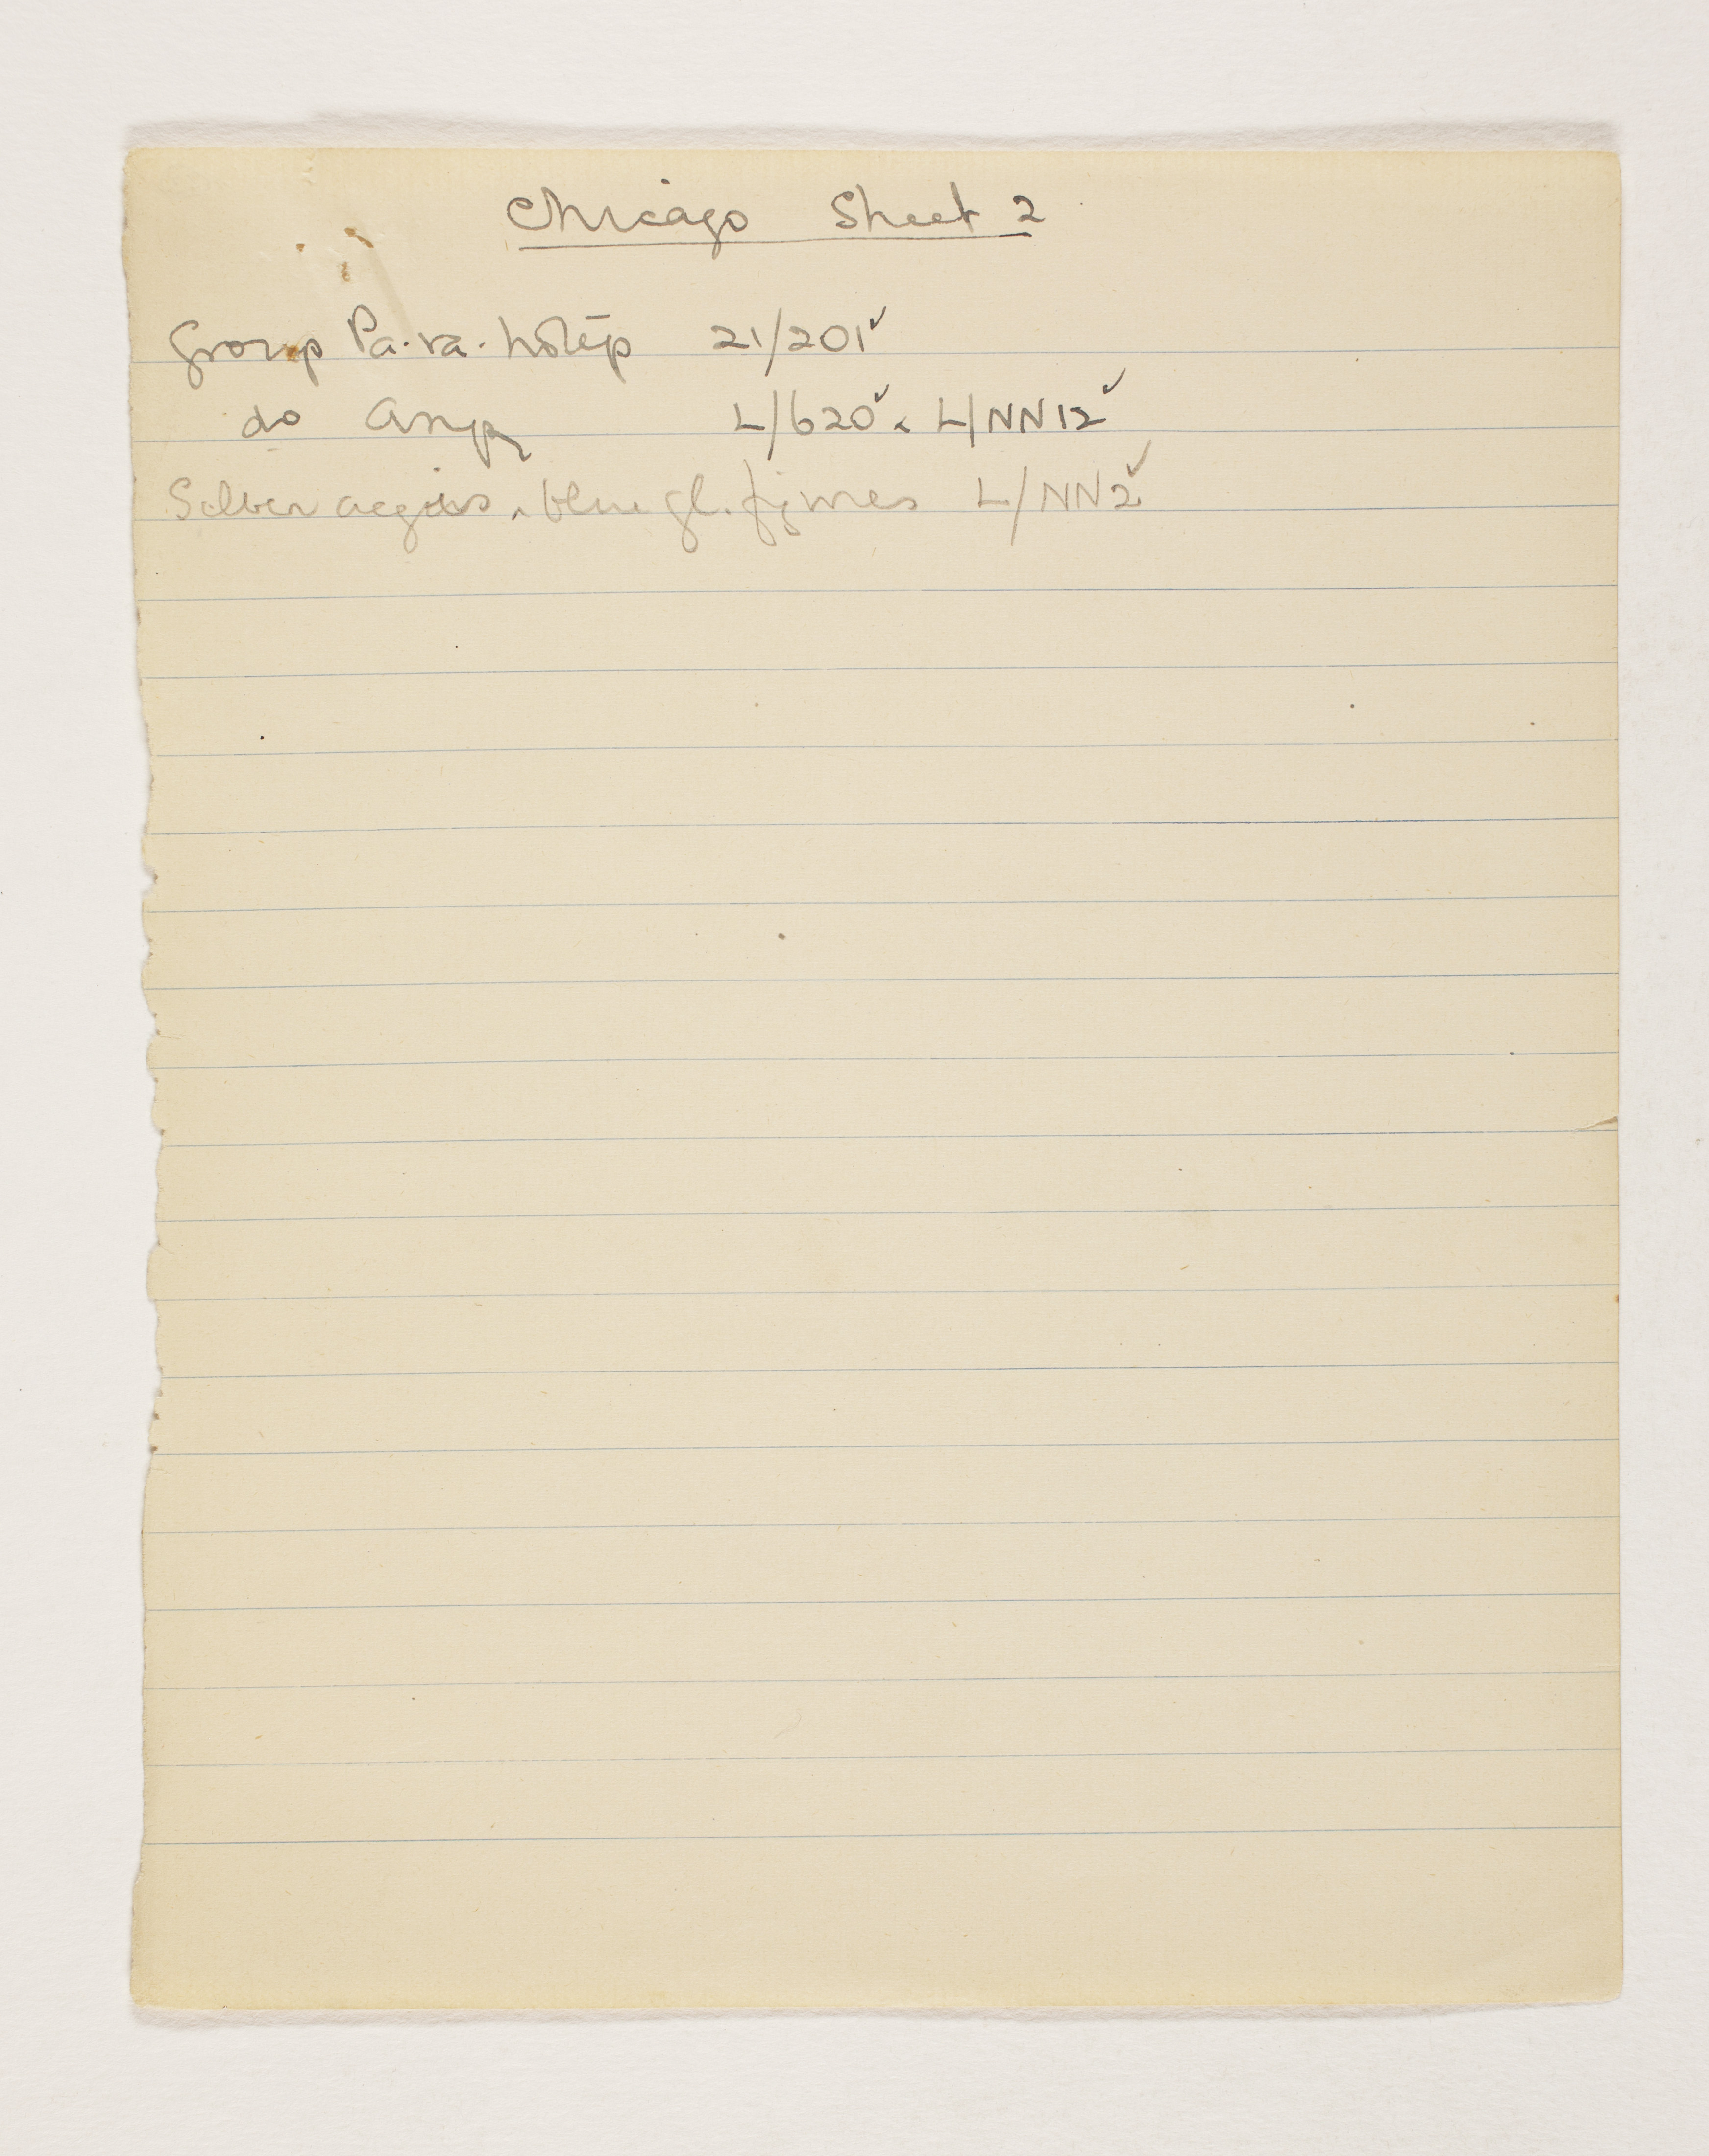 Chicago Sheet 2
Group Pa.ra.hotep 21/201 ✓
do L/620 ✓ & L/NN12 ✓
Silver aegis & blue gl. figures L/NN2 ✓